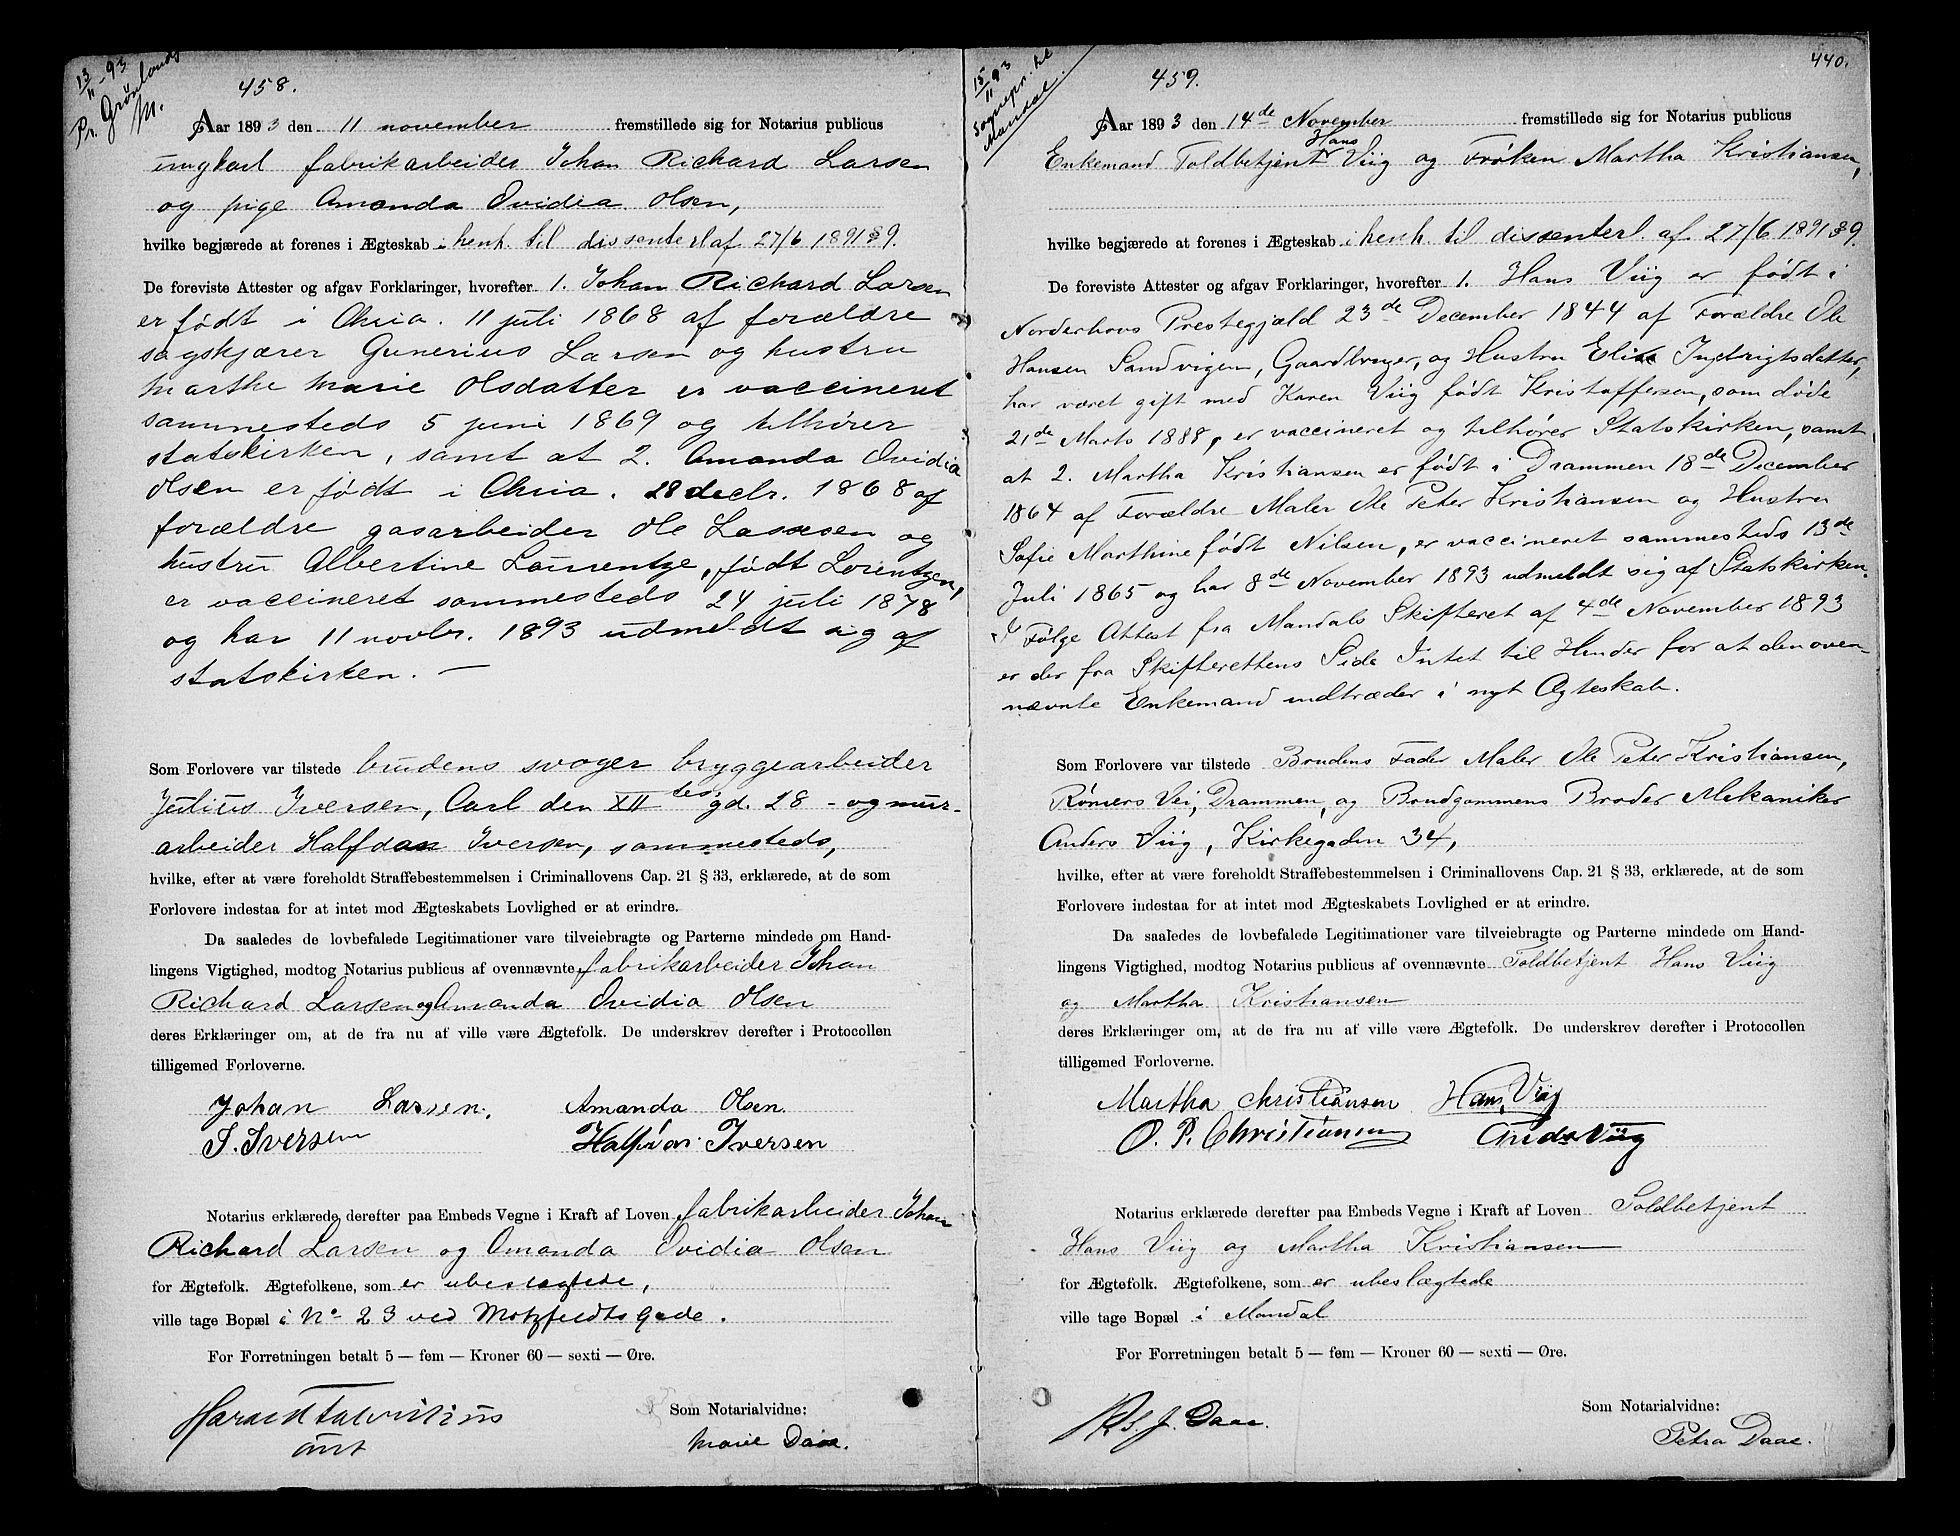 13/11-93
Pr. Grønlands
M.
458.
Aar 1893 den 11 november fremstillede sig for Notarius publicus
ungkarl fabrikarbeider Johan Richard Larsen
og pige Amanda Ovidia Olsen,
hvilke begjærede at forenes i Ægteskab i henh. til dissenterl af 27/6 1891 § 9.
De foreviste Attester og afgav Forklaringer, hvorefter 1. Johan Richard Larsen
er født i Chria. 11 juli 1868 af forældre
sagskjærer Gunerius Larsen og hustru
Marthe Marie Olsdatter er vaccineret
sammesteds 5 juni 1869 og tilhører
statskirken, samt at 2. Amanda Ovidia
Olsen er født i Chria. 28 decbr. 1868 af
forældre gasarbeider Ole Larsen og
hustru Albertine Laurentze, født Lorentzen,
er vaccineret sammesteds 24 juli 1878
og har 11 novbr. 1893 udmeldt sig af
statskirken. —
Som Forlovere var tilstede brudens svoger bryggearbeider
Julius Iversen, Carl den XII tes gd. 28 - og mur-
arbeider Halfdan Iversen, sammesteds,
hvilke, efter at være foreholdt Straffebestemmelsen i Criminallovens Cap. 21 § 33, erklærede, at de som
Forlovere indestaa for at intet mod Ægteskabets Lovlighed er at erindre.
Da saaledes de lovbefalede Legitimationer vare tilveiebragte og Parterne mindede om Hand-
lingens Vigtighed, modtog Notarius publicus af ovennævnte fabrikarbeider Johan
Richard Larsen og Amanda Ovidia Olsen
deres Erklæringer om, at de fra nu af ville være Ægtefolk. De underskrev derefter i Protocollen
tilligemed Forloverne.
Johan Larsen. Amanda Olsen.
J. Iversen Halfdan Iversen
Notarius erklærede derefter paa Embeds Vegne i Kraft af Loven fabrikarbeider Johan
Richard Larsen og Amanda Ovidia Olsen
for Ægtefolk. Ægtefolkene, som er ubeslægtede,
ville tage Bopæl i No 23 ved Motzfeldts gade.
For Forretningen betalt 5 — fem — Kroner 60 — sexti — Øre.
Som Notarialvidne:
Marie Daae.
15/11 93
Sognepr. til
Mandal
440.
459.
Aar 1893 den 14de November fremstillede sig for Notarius publicus
Enkemand Toldbetjent Hans Viig og Frøken Martha Kristiansen,
hvilke begjærede at forenes i Ægteskab i henh. til dissenterl. af 27/6 1891 § 9.
De foreviste Attester og afgav Forklaringer, hvorefter 1. Hans Viig er født i
Norderhovs Prestegjæld 23de December 1844 af Forældre Ole
Hansen Sandvigen, Gaardbruger, og Hustru Elise Ingbrigtsdatter,
har været gift med Karen Viig født Kristoffersen, som døde
21de Marts 1888, er vaccineret og tilhører Statskirken, samt
at 2. Martha Kristiansen er født i Drammen 18de December
1864 af Forældre Maler Ole Peter Kristiansen og Hustru
Sofie Marthine født Nilsen, er vaccineret sammesteds 13de
Juli 1865 og har 8de November 1893 udmeldt sig af Statskirken.
I Følge Attest fra Mandals Skifteret af 4de November 1893
er der fra Skifterettens Side Intet til Hinder for at den oven-
nævnte Enkemand indtræder i nyt Ægteskab.
Som Forlovere var tilstede Brudens Fader Maler Ole Peter Kristiansen,
Rømers Vei, Drammen, og Brudgommens Broder Mekaniker
Anders Viig, Kirkegaden 34,
hvilke, efter at være foreholdt Straffebestemmelsen i Criminallovens Cap. 21 § 33, erklærede, at de som
Forlovere indestaa for at intet mod Ægteskabets Lovlighed er at erindre.
Da saaledes de lovbefalede Legitimationer vare tilveiebragte og Parterne mindede om Hand-
lingens Vigtighed, modtog Notarius publicus af ovennævnte Toldbetjent Hans Viig
og Martha Kristiansen
deres Erklæringer om, at de fra nu af ville være Ægtefolk. De underskrev derefter i Protocollen
tilligemed Forloverne.
Martha Christiansen Hans Viig
O. P. Christiansen Anders Viig
Notarius erklærede derefter paa Embeds Vegne i Kraft af Loven Toldbetjent
Hans Viig og Martha Kristiansen
for Ægtefolk. Ægtefolkene, som er ubeslægtede
ville tage Bopæl i Mandal
For Forretningen betalt 5 — fem — Kroner 60 — sexti — Øre.
Daae.
Som Notarialvidne:
Petra Daae.